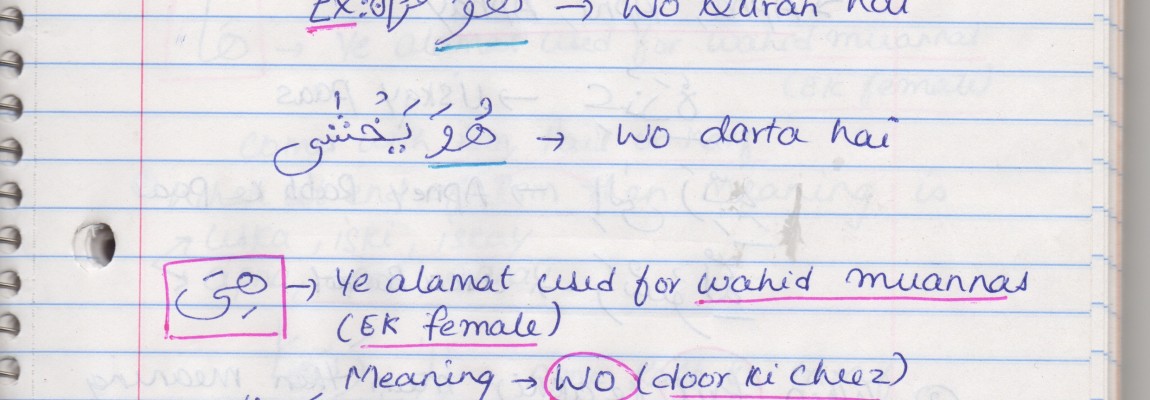 Ex: هو قرآن → Wo Quran hai
هُوَ يَخْشٰى → Wo darta hai
هِیَ → Ye alamat used for wahid muannas
(EK female)
Meaning → WO (door ki cheez)